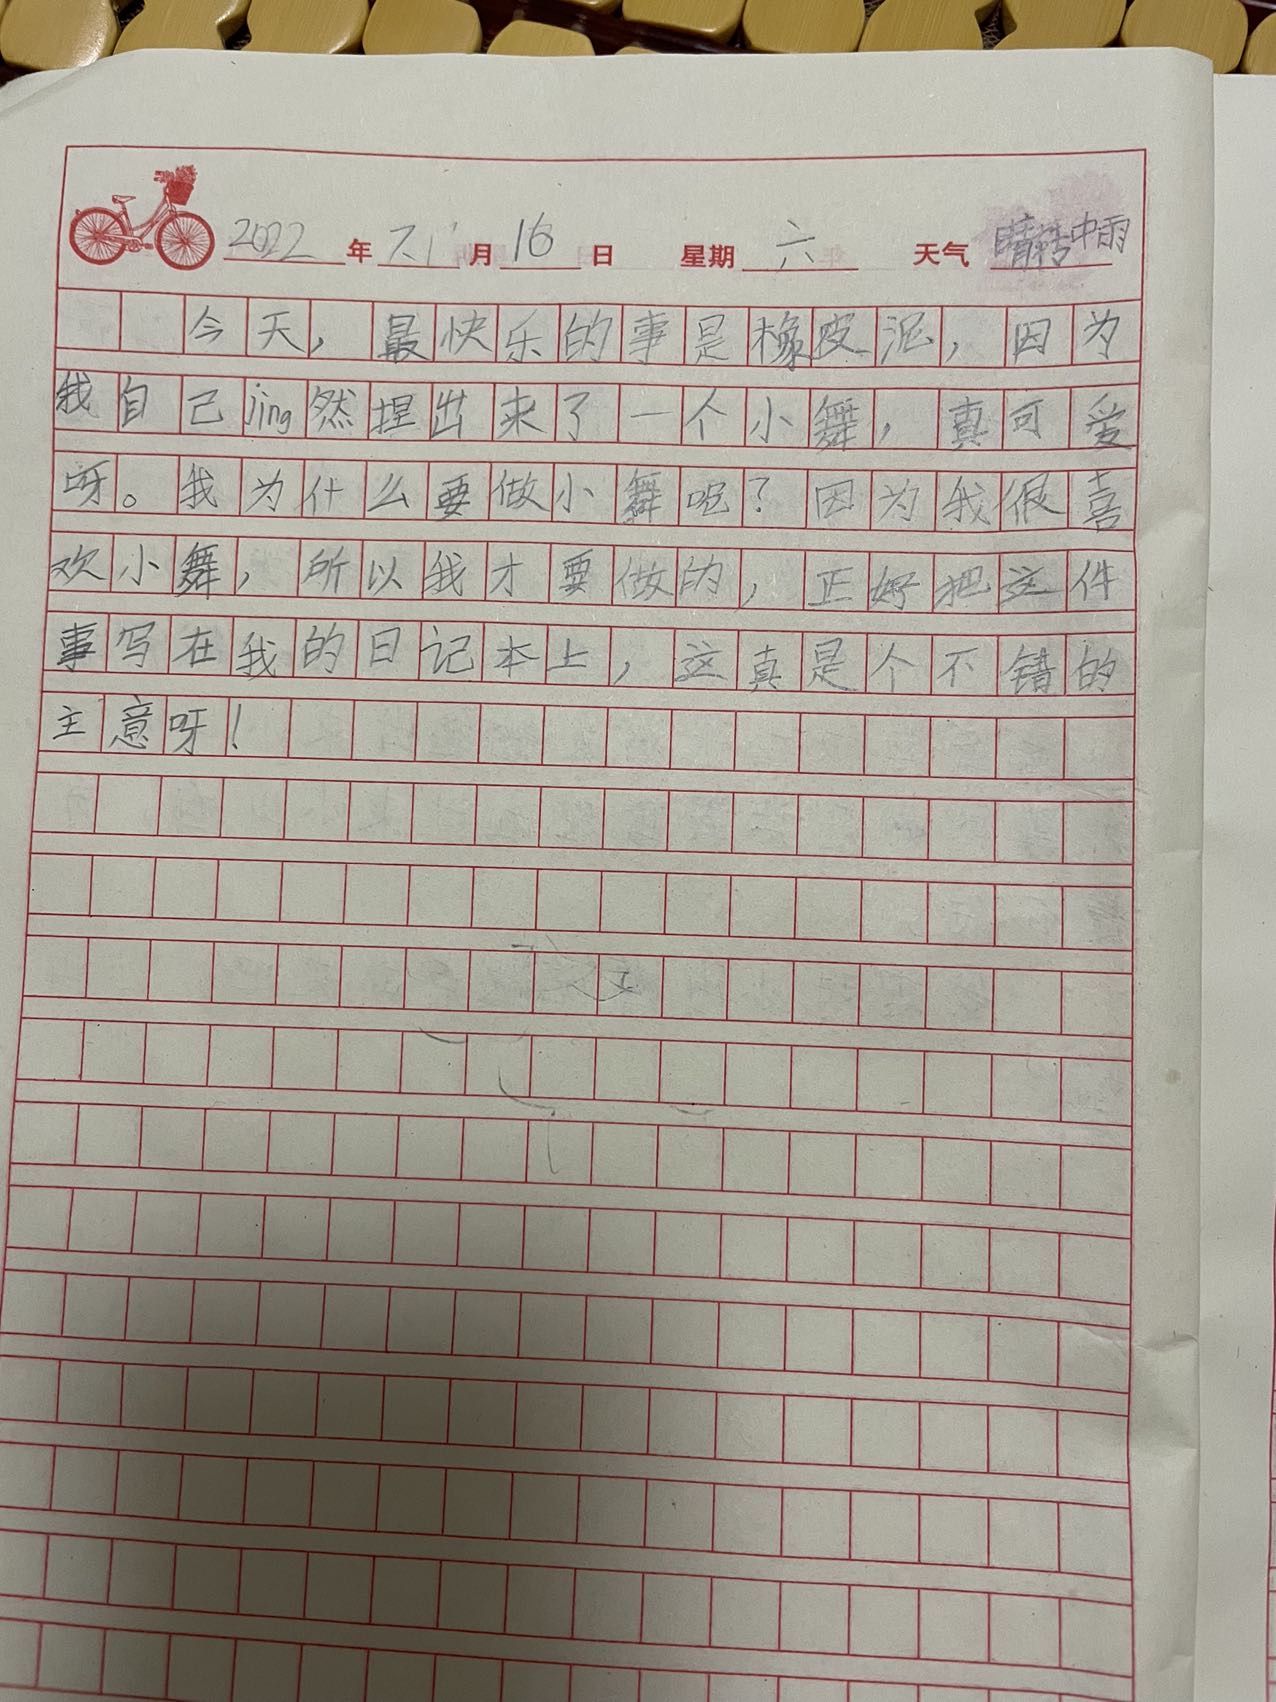 2022 年 月 16 日 星期 六 天气 晴转中雨
今天，最快乐的事是橡皮泥，因为
我自己jing然捏出来了一个小舞，真可爱
呀。我为什么要做小舞呢？因为我很喜
欢小舞，所以我才要做的，正好把这件
事写在我的日记本上，这真是个不错的
主意呀！